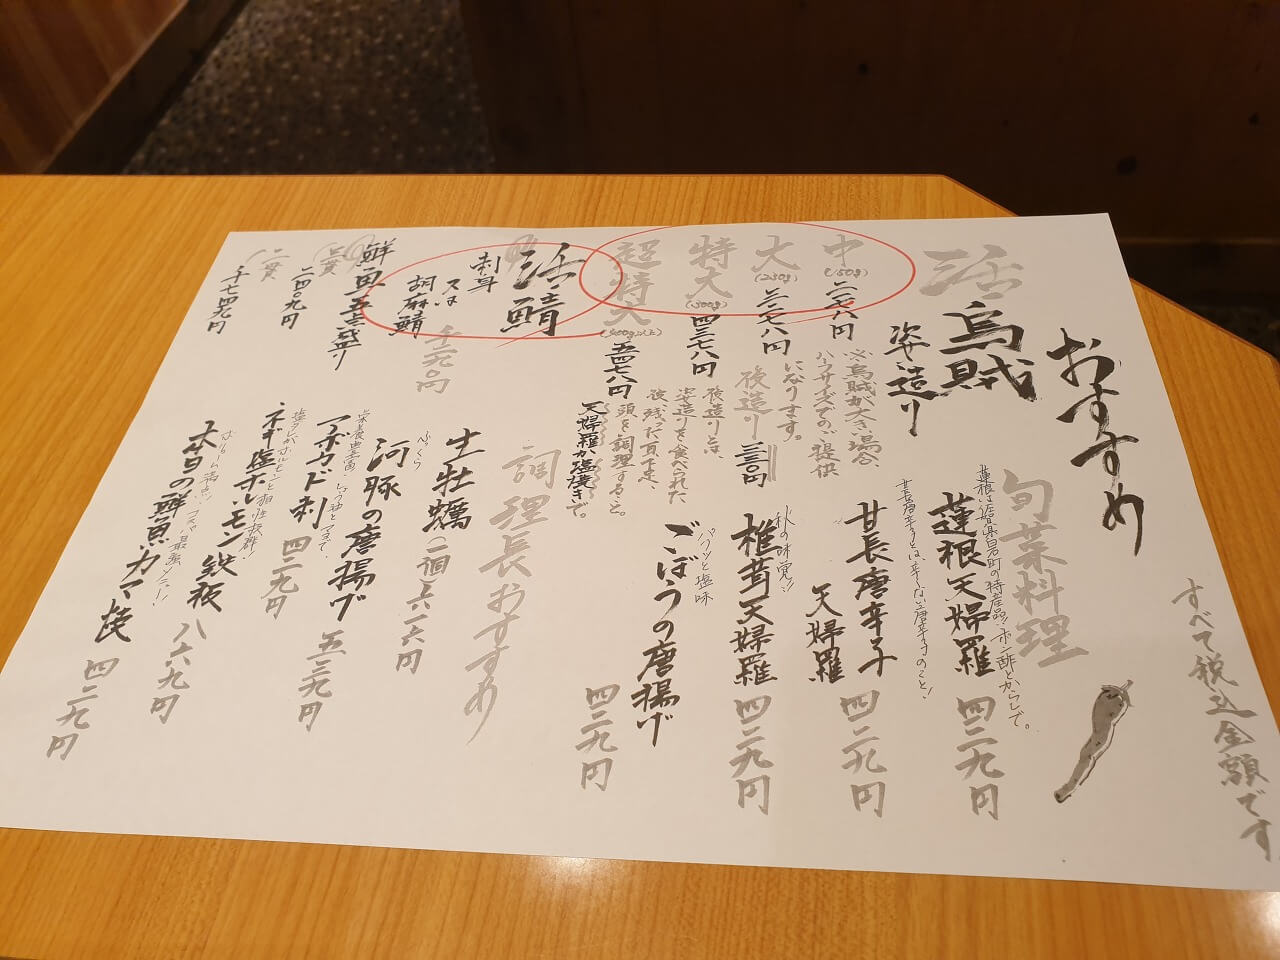 すべて税込金額です
おすすめ
活烏賊
姿造り
中(150g) 二七八円
大(250g) 三二七八円
特大(300g) 四三七八円
超特大(400g以上) 五四七八円
※烏賊が大きい場合、
ハーフサイズでのご提供
になります。
後造り 三三〇円
後造りとは、
姿造りを食べられた
後残った耳、下足、
頭を調理すること。
天婦羅か塩焼きで。
活鯖
刺身
又は
胡麻鯖
鮮魚五点盛り
二四〇九円
旬菜料理
蓮根は佐賀県白石町の特産品!ポン酢とからしで。
蓮根天婦羅 四二九円
甘長唐辛子とは、辛くない唐辛子のこと!
甘長唐辛子
天婦羅 四二九円
秋の味覚!!
椎茸天婦羅 四二九円
パクッと塩味
ごぼうの唐揚げ
四二九円
調理長おすすめ
生牡蠣(一個)六一六円
ふくら
河豚の唐揚げ 五三九円
栄養豊富 しょう油とマヨで、
アボカド刺 四二九円
塩ダレがホルモンと相性抜群
ネギ塩ホルモン鉄板 八六九円
本日の鮮魚カマ焼 四二九円